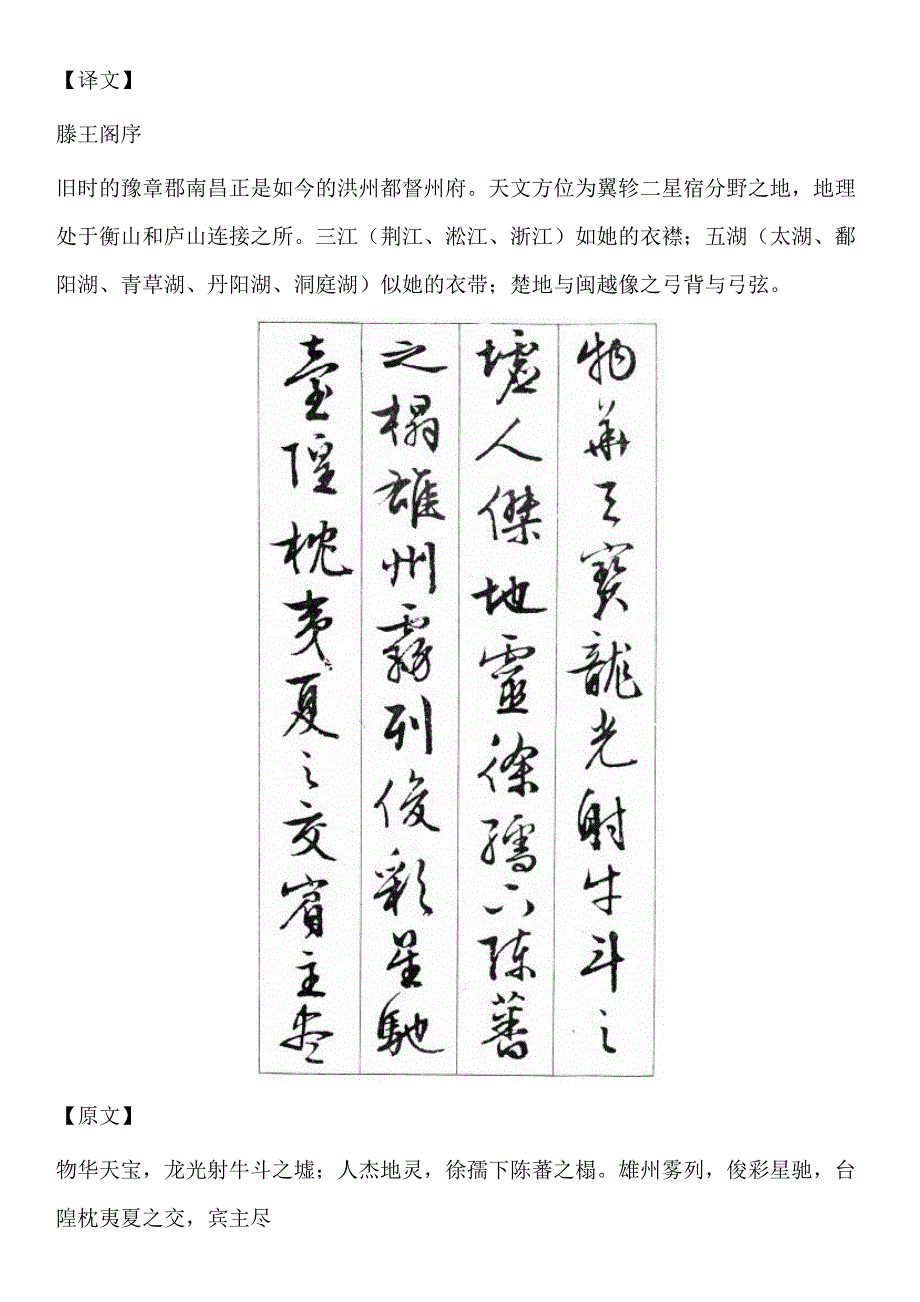 【译文】
滕王阁序
旧时的豫章郡南昌正是如今的洪州都督州府。天文方位为翼轸二星宿分野之地，地理
处于衡山和庐山连接之所。三江（荆江、淞江、浙江）如她的衣襟；五湖（太湖、鄱
阳湖、青草湖、丹阳湖、洞庭湖）似她的衣带；楚地与闽越像之弓背与弓弦。
物華天寳龍光射牛斗之
墟人傑地靈徐孺下陳蕃
之榻雄州霧列俊彩星馳
臺隍枕夷夏之交賓主尽
【原文】
物华天宝，龙光射牛斗之墟；人杰地灵，徐孺下陈蕃之榻。雄州雾列，俊彩星驰，台
隍枕夷夏之交，宾主尽